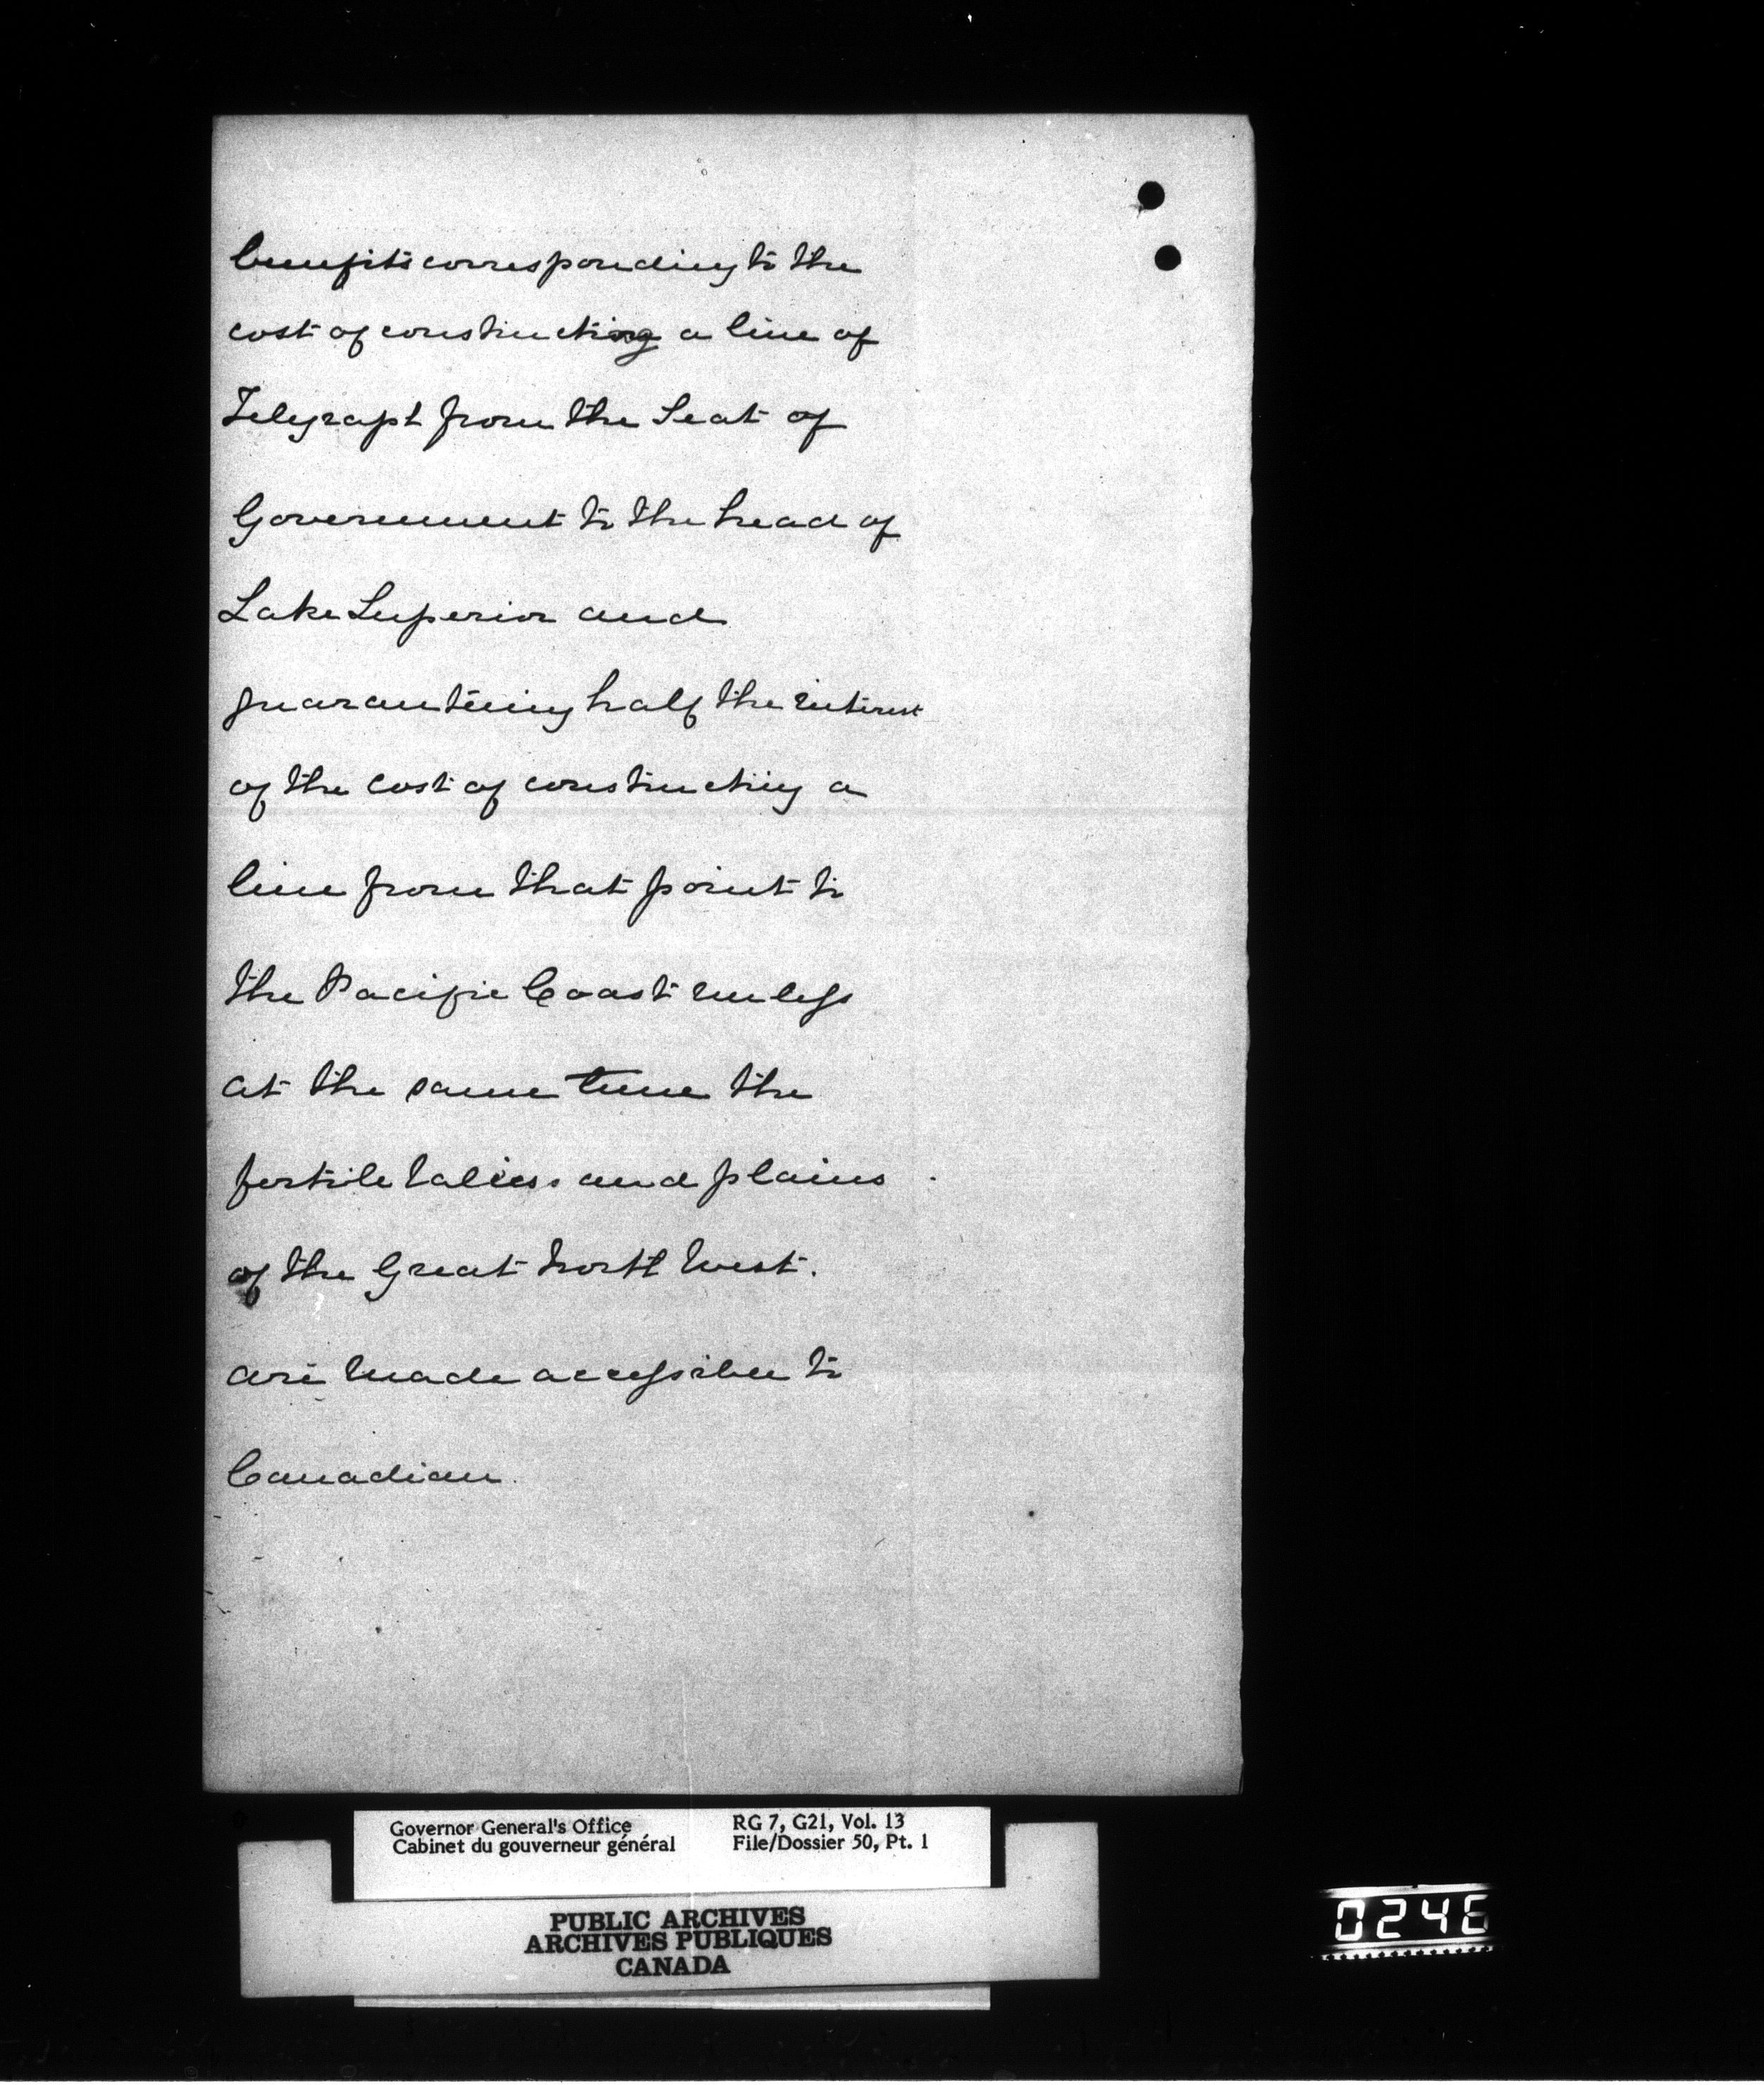 benefits corresponding to the
cost of constructing a line of
Telegraph from the Seat of
Government to the head of
Lake Superior and
guaranteeing half the interest
of the cost of constructing a
line from that point to
the Pacific Coast unless
at the same time the
fertile valies and plains
of the Great North West.
are made accessible to
Canadian
Governor General's Office RG 7, G21, Vol. 13
Cabinet du gouverneur général File/Dossier 50, Pt. 1
PUBLIC ARCHIVES
ARCHIVES PUBLIQUES
CANADA